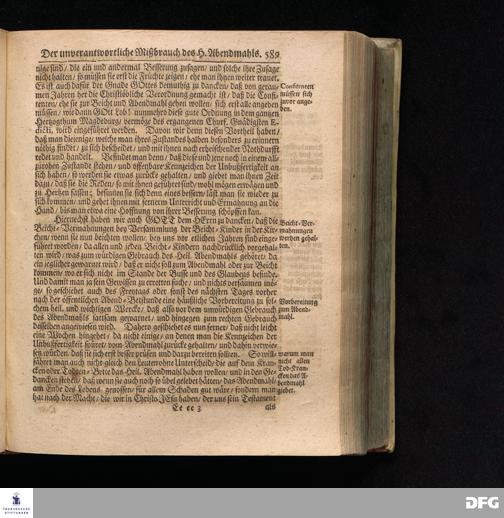 Der unverantwortliche Mißbrauch des H. Abendmahls. 589
nige sind/ die ein und andermal Besserung zusagen/ und solche ihre Zusage
nicht halten/ so müssen sie erst die Früchte zeigen/ ehe man ihnen weiter trauet.
Es ist auch dafür der Gnade GOttes demuthig zu dancken/ daß vor geraumen
Jahren her die Christlöbliche Verordnung gemacht ist/ daß die Confitenten/
ehe sie zur Beicht und Abendmahl gehen wollen/ sich erst alle angeben
müssen/ wie dann GOtt Lob! nunmehro diese gute Ordnung in dem gantzen
Hertzogthum Magdeburg vermöge des ergangenen Churf. Gnädigsten E-
dicti, wird eingeführet werden. Davon wir denn diesen Vortheil haben/
daß man diejenige/ welche man ihres Zustandes halben besonders zu erinnern
nöthig findet/ zu sich bescheidet/ und mit ihnen nach erheischender Nohtdurfft
redet und handelt. Befindet man denn/ daß diese und jene noch in einem allzurohen
Zustande stehen/ und offenbare Kennzeichen der Unbußfertigkeit an
sich haben/ so werden sie etwas zurück gehalten/ und giebet man ihnen Zeit
dazu/ daß sie die Reden/ so mit ihnen geführet sind/ wohl mögen erwägen und
zu Hertzen fassen; besinnen sie sich denn eines bessern/ läst man sie wieder zu
sich kommen/ und gehet ihnen mit fernerm Unterricht und Ermahnung an die
Hand/ bis man etwa eine Hoffnung von ihrer Besserung schöpffen kan.
Hiernechst haben wir auch GOTT dem HErrn zu dancken/ daß die
Beicht-Vermahnungen bey Versammlung der Beicht-Kinder in der Kirchen/
wenn sie nun beichten wollen/ bey uns vor etlichen Jahren sind eingeführet
worden/ da allen und jeden Beicht-Kindern nachdrücklich vorgehalten
wird/ was zum würdigen Gebrauch des Heil. Abendmahls gehöret/ da
ein ieglicher gewarnet wird/ daß er nicht soll zum Abendmahl oder zur Beicht
kommen/ wo er sich nicht im Stande der Busse und des Glaubens befinde.
Und damit man ja sein Gewissen zu erretten suche/ und nichts versäumet möge/
so geschiehet auch des Freytags oder sonst des nächsten Tages vorher
nach der öffentlichen Abend-Betstunde eine häußliche Vorbereitung zu solchem
heil. und wichtigen Wercke/ daß also vor dem unwürdigen Gebrauch
des Abendmahls gettsam gewarnet/ und hingegen zum rechten Gebrauch
desselben angewiesen wird. Dahero geschiehet es nun ferner/ daß nicht leicht
eine Wochen hingehet/ da nicht einige/ an denen man die Kennzeichen der
Unbußfertigkeit spüret/ vom Abendmahl zurücke gehalten/ und dahin verwiesen
würden/ daß sie sich erst besser prüfen und darzu bereiten sollten. So willfähret
man auch nicht gleich den Leuten ohne Unterscheid/ die auf dem Krancken
oder Todten-Bette das Heil. Abendmahl haben wollen/ und in den Gedancken
stehen/ daß wenn sie auch noch so übel gelebet hätten/ das Abendmahl/
am Ende des Lebens genossen/ für allem Schaden gut wäre/ sondern man
hat nach der Macht/ die wir in Christo JEsu haben/ der uns sein Testament
Ee ee 3
als
Confitenten
müssen sich
zuvor angeben.
Beicht-Vermahnungen
werden gehalten.
Vorbereitung
zum Abendmahl.
warum man
nicht allen
Tod-Krancken
das Abendmahl
giebet.
FRANCKESCHE
STIFTUNGEN
DFG